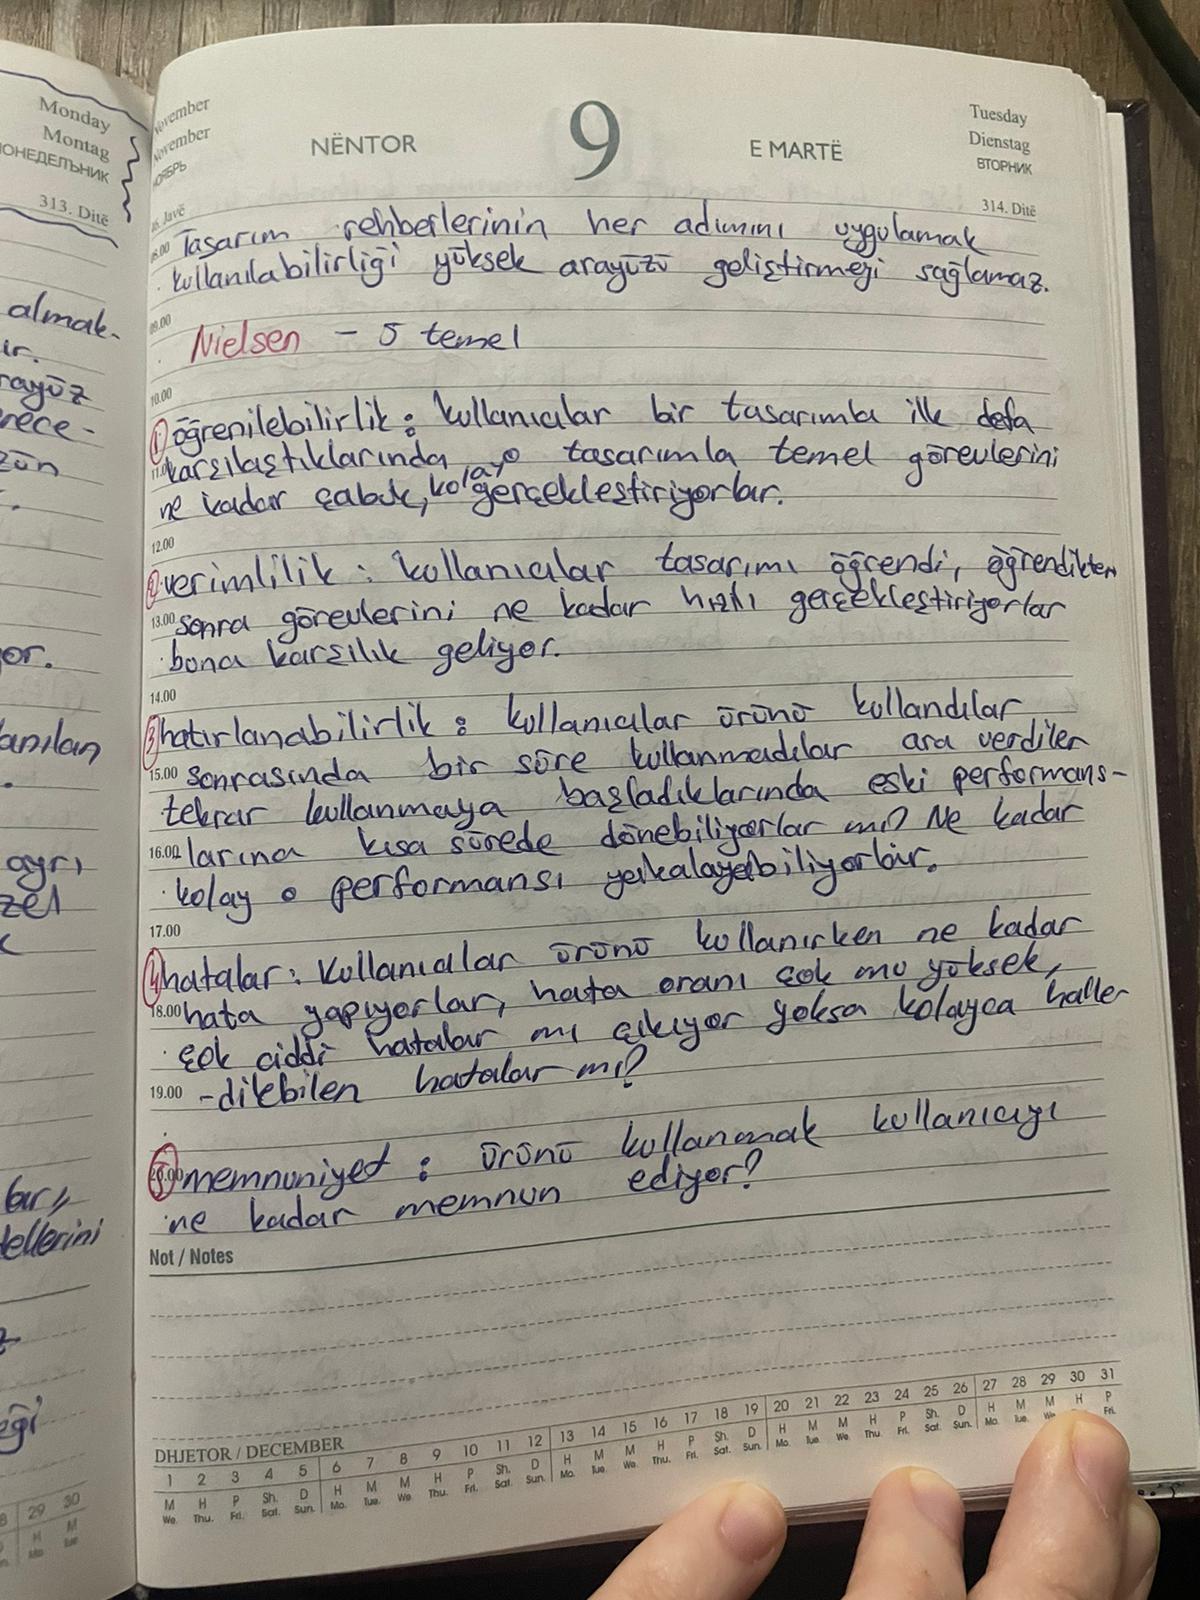 Monday
Montag
ПОНЕДЕЛЬНИК
313. Ditë
almak-
ir.
rayüz
rece-
zün
or.
anılan
ayrı
zel
lar,,
dellerini
29 30
H M
Mo Tue
November
November
НОЯБРЬ
NËNTOR
9
E MARTË
Tuesday
Dienstag
ВТОРНИК
314. Ditë
Javë
08.00 Tasarım rehberlerinin her adımını uygulamak
kullanılabilirliği yüksek arayüzü geliştirmeyi sağlamaz.
09.00
Nielsen - 5 temel
10.00
1 öğrenilebilirlik: kullanıcılar bir tasarımla ilk defa
11.00 karşılaştıklarında, o tasarımla temel görevlerini
ne kadar çabuk, kolay gerçekleştiriyorlar.
12.00
2 verimlilik: kullanıcılar tasarımı öğrendi, öğrendikten
13.00 sonra görevlerini ne kadar hızlı gerçekleştiriyorlar
buna karşılık geliyor.
14.00
3 hatırlanabilirlik: kullanıcılar ürünü kullandılar
15.00 sonrasında bir süre kullanmadılar ara verdiler
tekrar kullanmaya başladıklarında eski performans-
16.00 larına kısa sürede dönebiliyorlar mı? Ne kadar
kolay o performansı yakalayabiliyorlar.
17.00
4 hatalar: Kullanıcılar ürünü kullanırken ne kadar
18.00 hata yapıyorlar, hata oranı çok mu yüksek,
çok ciddi hatalar mı çıkıyor yoksa kolayca halle
19.00 -dilebilen hatalar mı?
20.00 5 memnuniyet: ürünü kullanmak kullanıcıyı
ne kadar memnun ediyor?
Not / Notes
DHJETOR / DECEMBER
1 2 3 4 5 6 7 8 9 10 11 12 13 14 15 16 17 18 19 20 21 22 23 24 25 26 27 28 29 30 31
M H P Sh. D H M M H P Sh. D H M M H P Sh. D H M M H P Sh. D H M M H P
We. Thu. Fri. Sat. Sun. Mo. Tue. We. Thu. Fri. Sat. Sun. Mo. Tue. We. Thu. Fri. Sat. Sun. Mo. Tue. We. Thu. Fri. Sat. Sun. Mo. Tue. We. Fri.